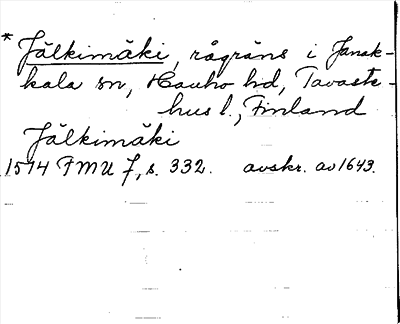 * Jälkimäki, rågräns i Janak-
kala sn, Hauho hd, Tavaste-
hus l., Finland
Jälkimäki
1514 FMU 7, s. 332. avskr. av 1643.